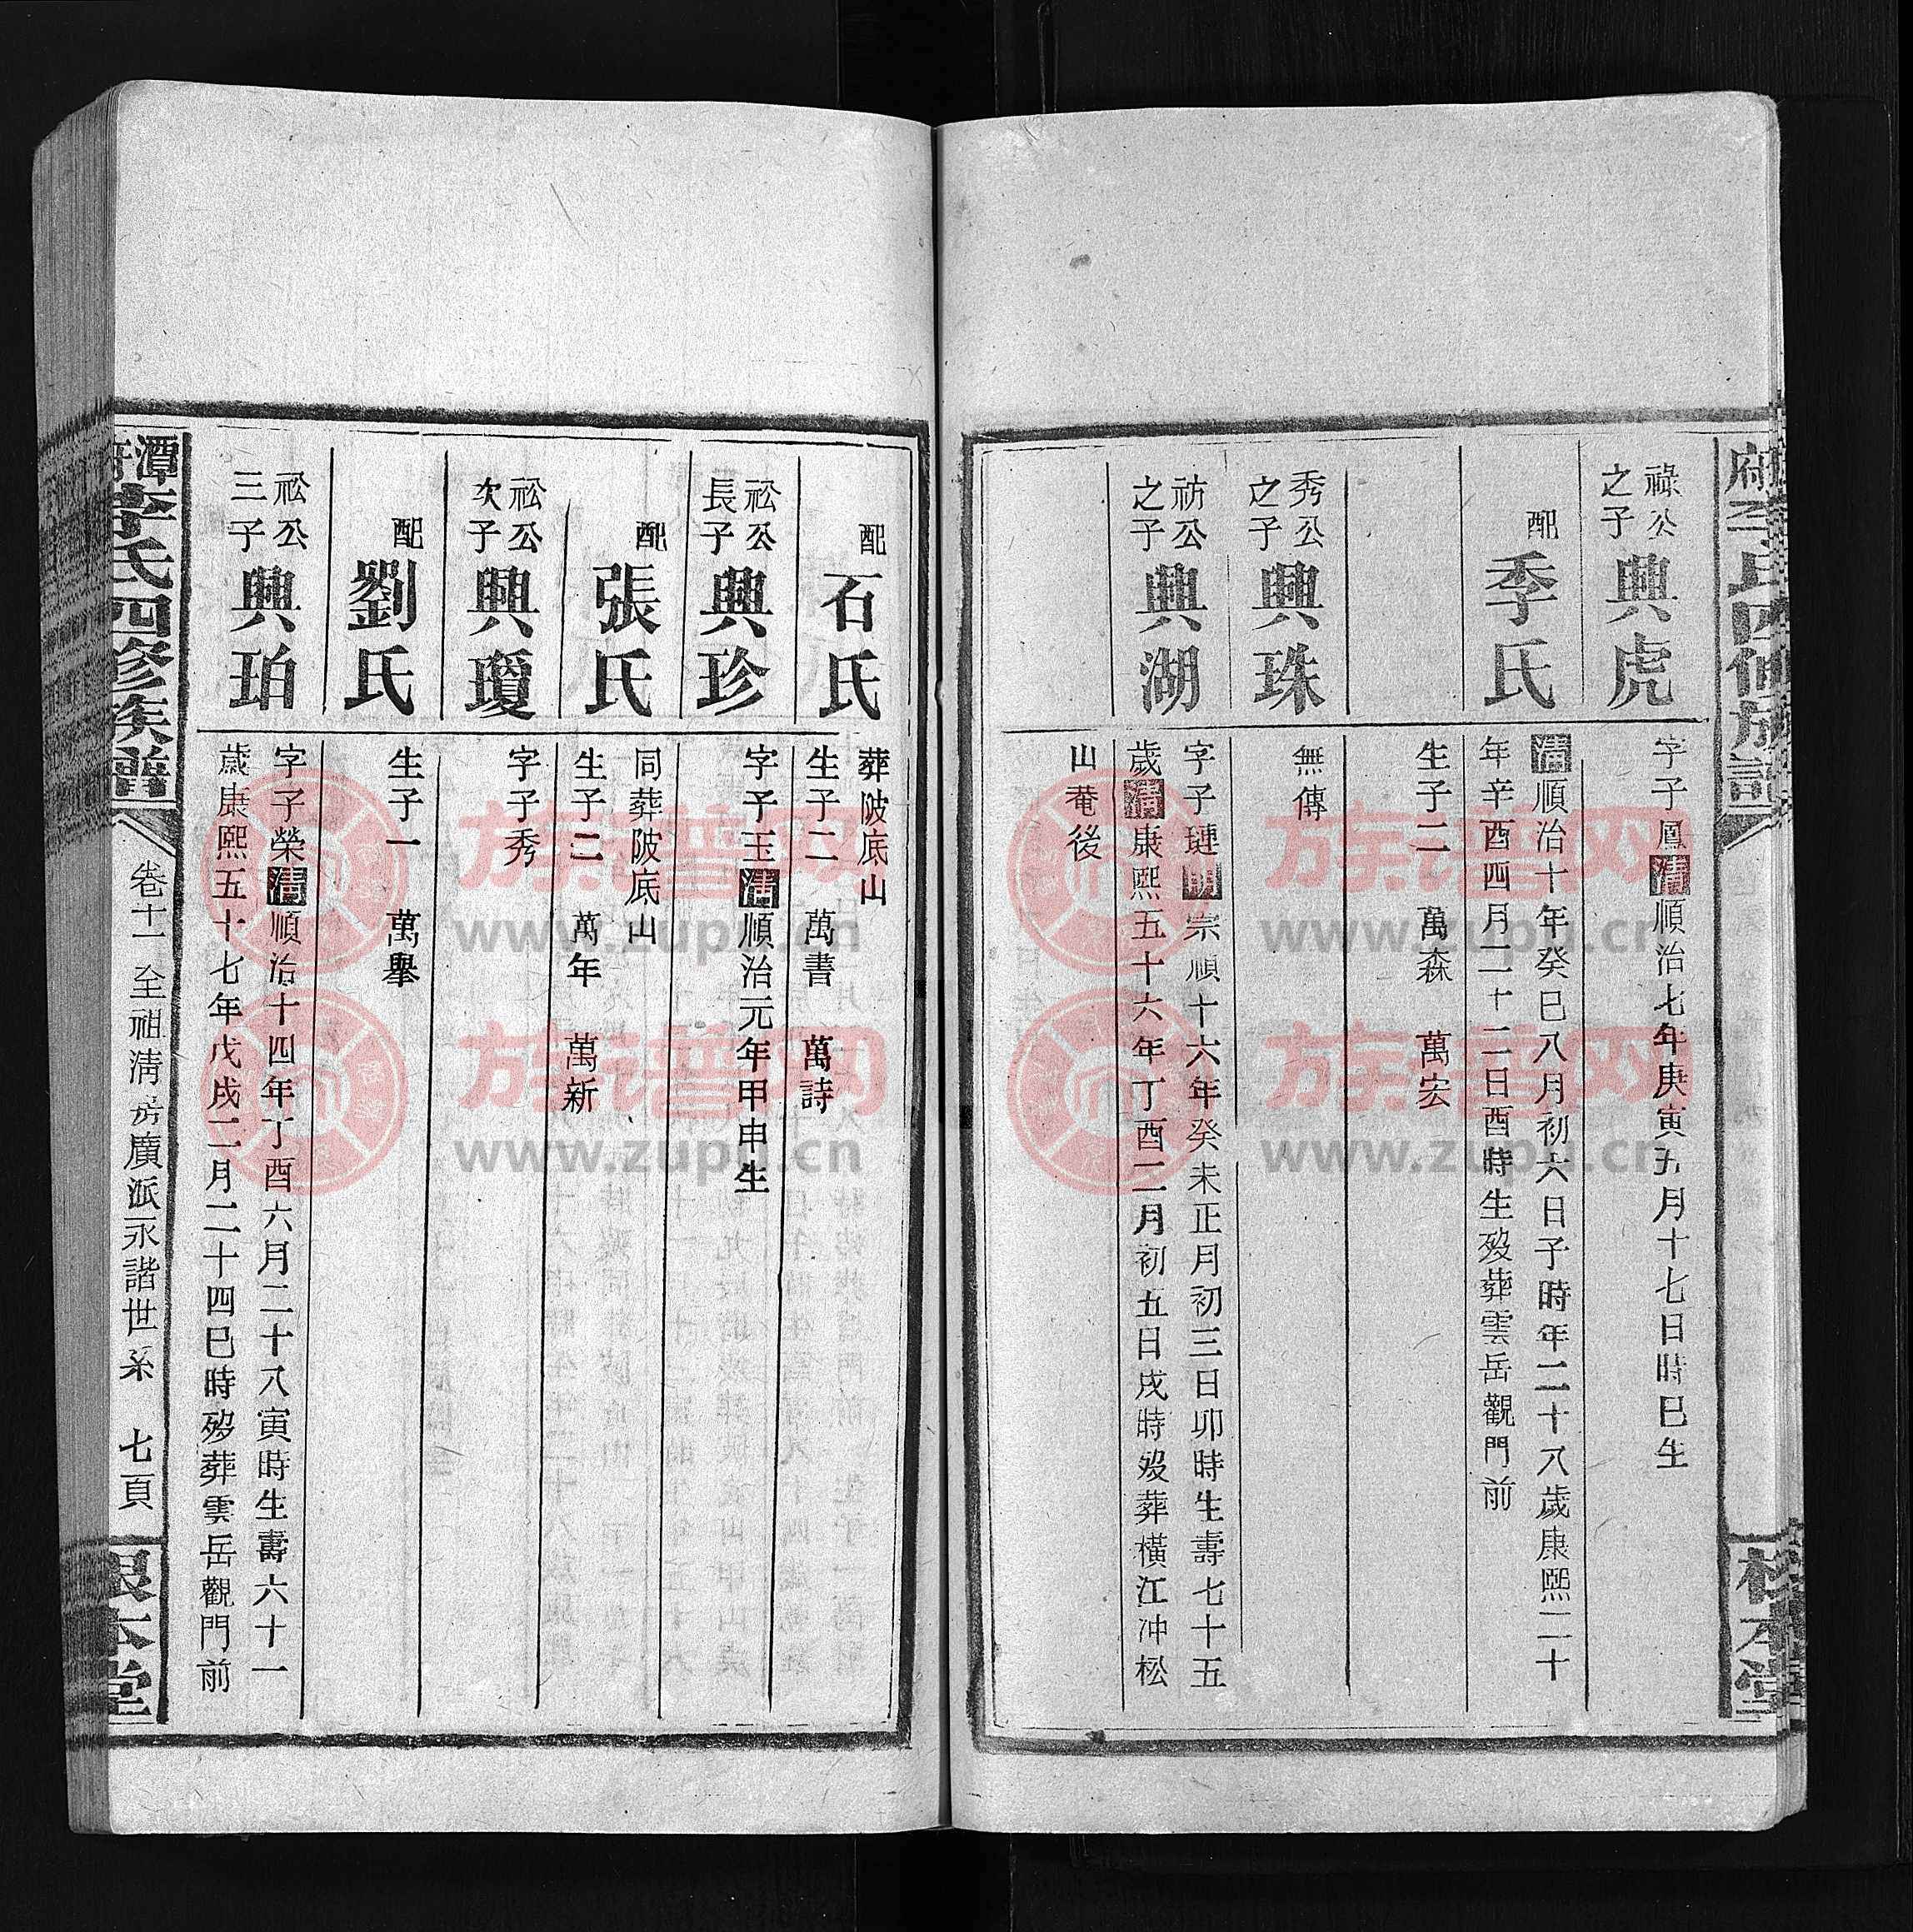 祿公
之子
興虎
字子鳳清順治七年庚寅九月十七日時巳生
配
季氏
清順治十年癸巳八月初六日子時年二十八歲康熙二十
年辛酉四月二十二日酉時生歿葬雲岳觀門前
生子二　萬森　萬宏
秀公
之子
興珠
無傳
祊公
之子
興湖
字子璉明宗順十六年癸未正月初三日卯時生壽七十五
歲清康熙五十六年丁酉二月初五日戌時歿葬橫江冲松
山菴後
配
石氏
葬陂底山
生子二　萬書　萬詩
祕公
長子
興珍
字子玉清順治元年甲申生
配
張氏
同葬陂底山
生子二　萬年　萬新
祕公
次子
興瓊
字子秀
配
劉氏
生子一　萬舉
祕公
三子
興珀
字子榮清順治十四年丁酉六月二十八寅時生壽六十一
歲康熙五十七年戊戌二月二十四巳時歿葬雲岳觀門前
潭府李氏四修族譜
卷十一至祖淸房廣派永諧世系
七頁
根本堂
族谱网
www.zupu.cn
族谱网
www.zupu.cn
族谱网
www.zupu.cn
族谱网
www.zupu.cn